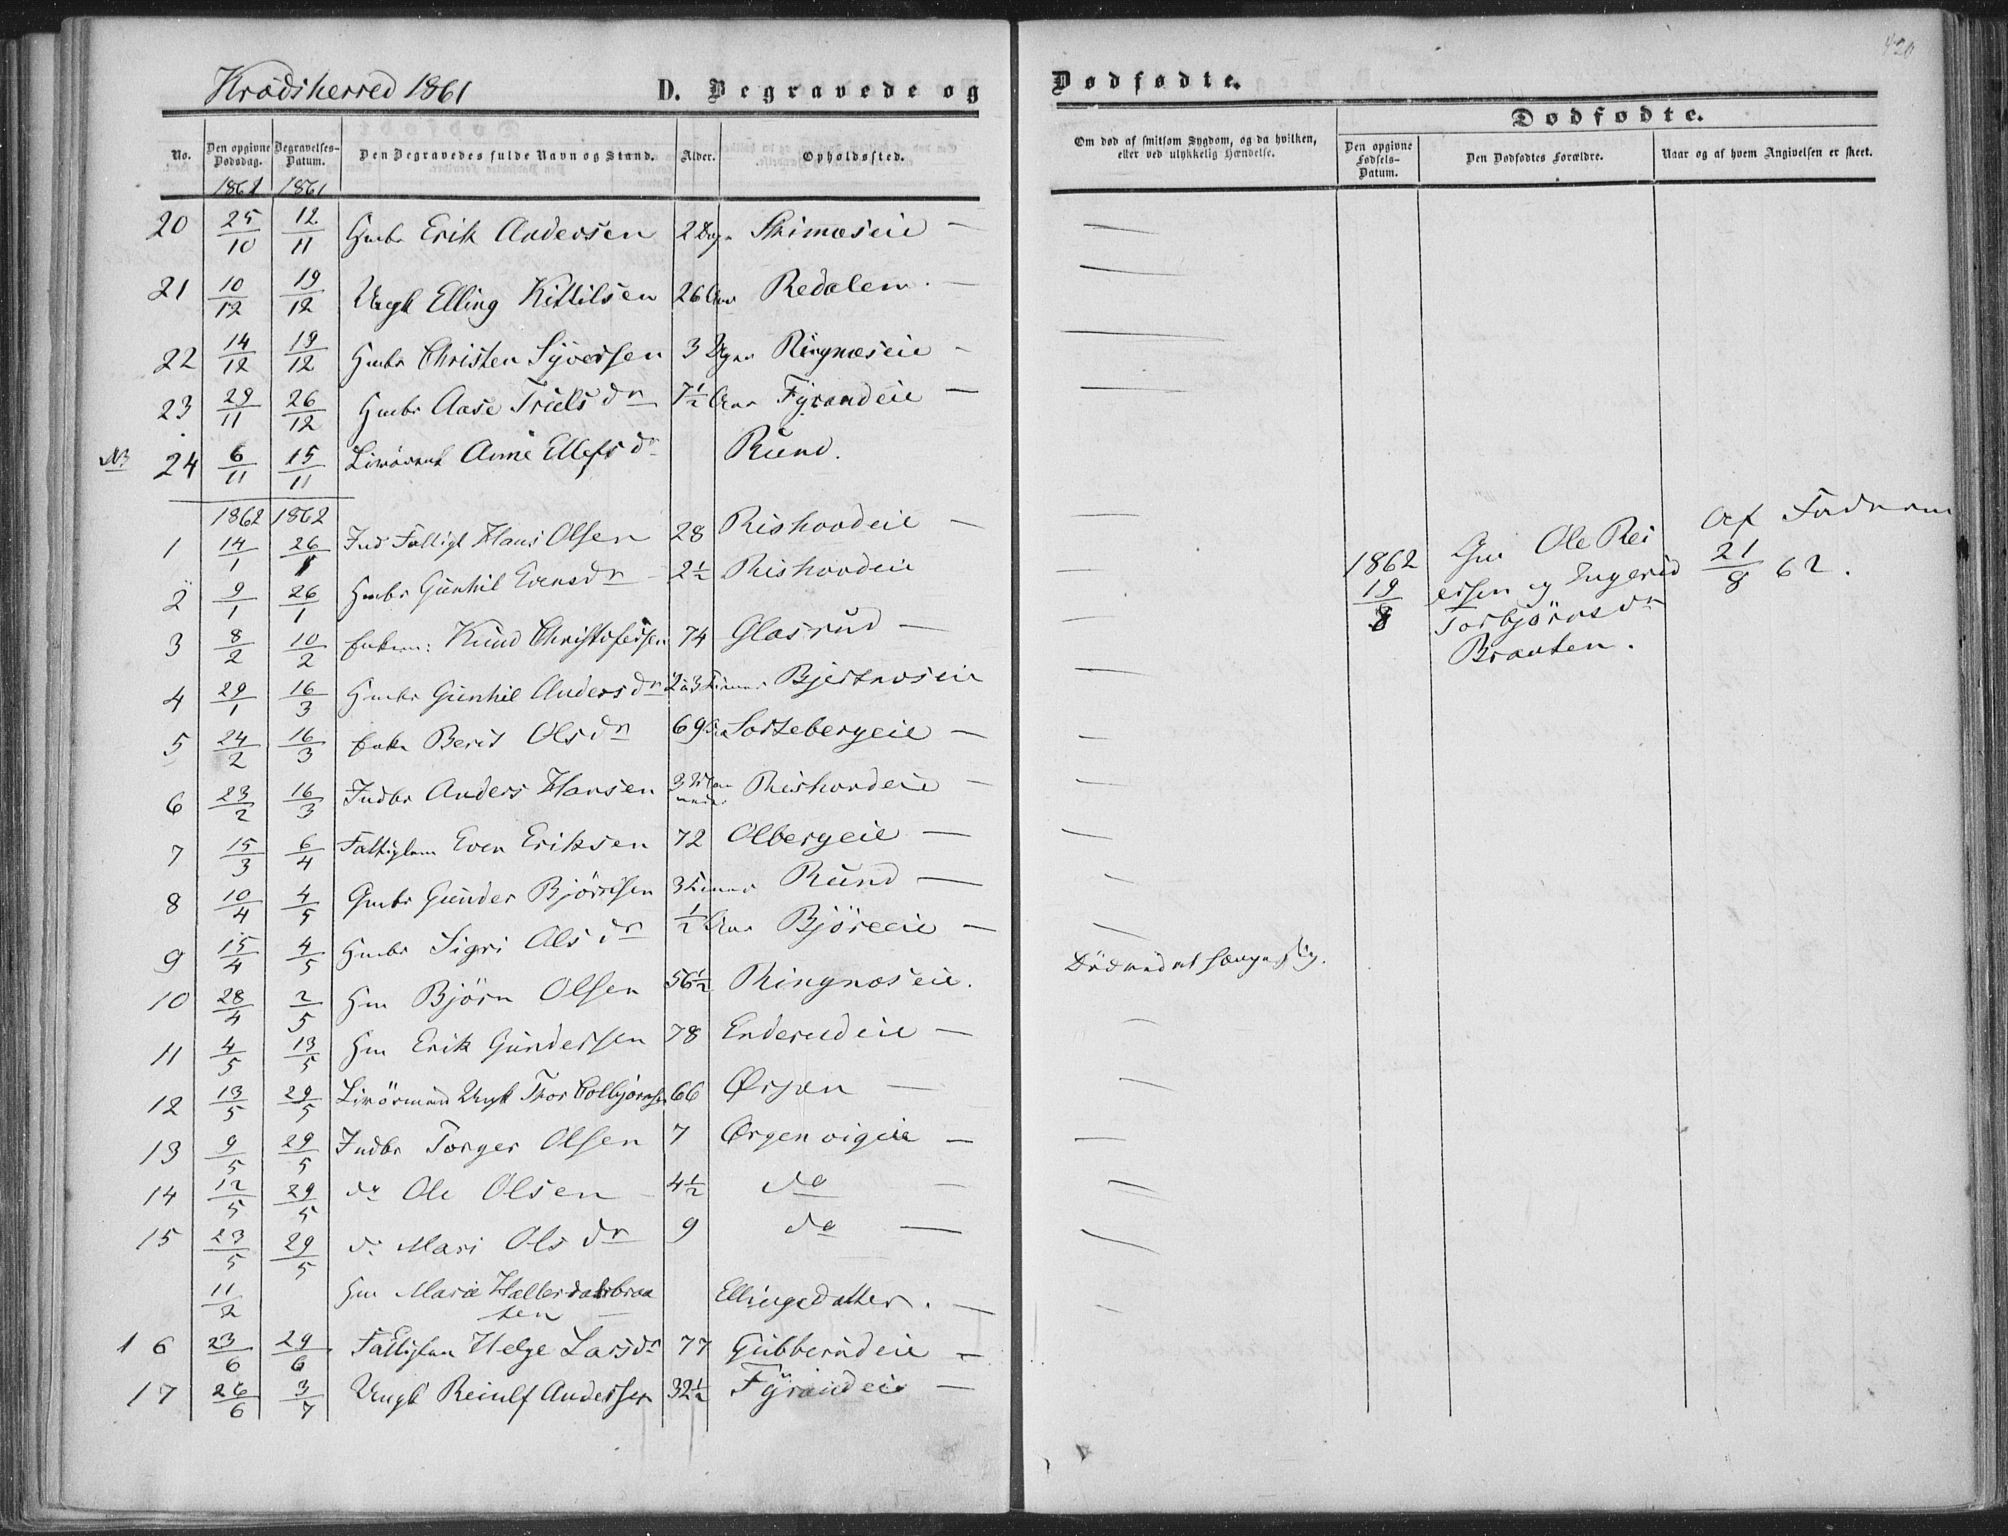 420
Krødsherred 1861 D. Begravede og Dødfødte.
Dødfødte.
No. Den opgivne Dødsdag. Begravelses-Datum. Den Begravedes fulde Navn og Stand. Alder. Opholdssted. Om død af smitsom Sygdom, og da hvilken, eller ved ulykkelig Hændelse. Den opgivne Fødsels-Datum. Den Dødfødtes Forældre. Naar og af hvem Angivelsen er skeet.
1861 1861
20 25/10 12/11 Gmbr Erik Andersen 2 Dage —
21 10/12 19/12 Ungk Elling Kittilsen 26 Aar Redalen. —
22 14/12 19/12 Hmbr Christen Syversen 3 Dgne Ringnæseie —
23 29/11 26/12 Hmbr Aase Truls dr 7½ Aar Fyrandeie —
NB 24 6/11 15/11 Anne Ellefs dr Rund.
1862 1862
1 14/1 26/1 Ind Fattigl Hans Olsen 28 Rishovdeie —
2 9/1 26/1 Hmbr Gunhil Evensdr 2½ Rishovdeie
3 8/2 10/2 Enkem: Knud Christofersen 74 Glasrud —
4 29/1 16/3 Hmbr Gunhil Anders dr 2 a 3 Timer
5 24/2 16/3 Enke Berit Olsdr 69 Aar Sortebergeie —
6 23/2 16/3 Indbr Anders Hansen Rishovdeie —
7 15/3 6/4 Fattiglem Even Eriksen 72 Olbergeie —
8 10/4 4/5 Gmbr Gunder Bjørnsen 3 Timer Rund —
9 15/4 4/5 Hmbr Sigri Ols dr ½ Aar Bjøreeie —
10 28/4 2/5 Hm Bjørn Olsen 56½ Ringnæseie. Død ved at hænge sig.
11 4/5 13/5 Hm Erik Gundersen 78 Enderudeie —
12 13/5 29/5 Ungk Thor Colbjørnsen 66 Ørgen —
13 9/5 29/5 Indbr Torger Olsen 7 Ørgenvigeie —
14 12/5 29/5 do Ole Olsen 4½ do —
15 23/5 29/5 do Mari Ols dr 9 do —
11/2 Hm Marie Hallerdalsbraa
ten Ellingsdatter. —
16 23/6 29/6 Fattiglem Helge Larsdr 77 Gubberudeie —
17 26/6 3/7 Ungk Reiulf Andersen 32½ Fyrandeie —
1862 Gm Ole Rei Af Faderen
19/8 ersen og Ingerid 21/8 62.
Torbjørnsdr
Braaten.